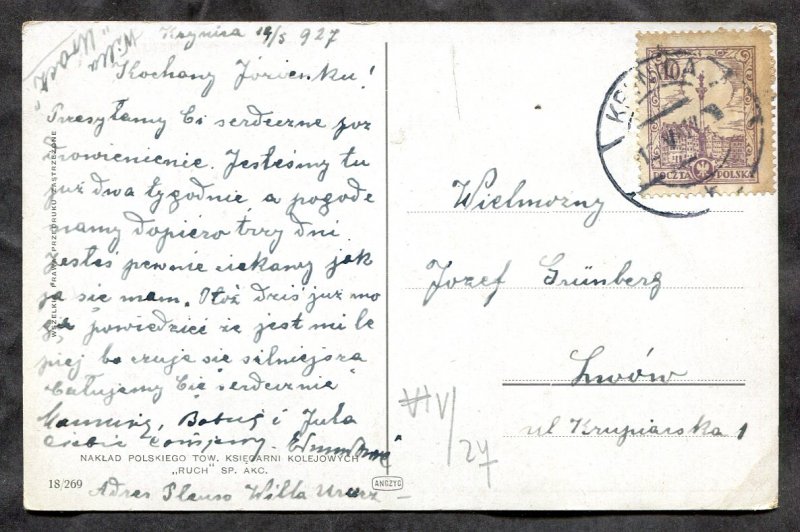 Krynica 19/5 927
Willa
Kochany Józienku!
Przesyłamy Ci serdeczne poz
drowienienie. Jesteśmy tu
już dwa tygodnie, a pogode
mamy dopiero trzy dni
jesteś pewnie ciekawy jak
ja się mam. Otóż dziś już mo
gę powiedzieć że jest mi le
piej bo czuję się silniejsza
Całujemy Cię serdecznie
Mamusię, Babcię i Jula
ciebie
WSZELKIE PRAWA PRZEDRUKU ZASTRZEŻONE
NAKŁAD POLSKIEGO TOW. KSIĘGARNI KOLEJOWYCH
„RUCH" SP. AKC.
18/269
ANCZYC
Adres Willa
KRYNICA
10
POCZTA POLSKA
Wielmożny
Jozef Grünberg
Lwów
ul Krupiarska 1
VIV/27